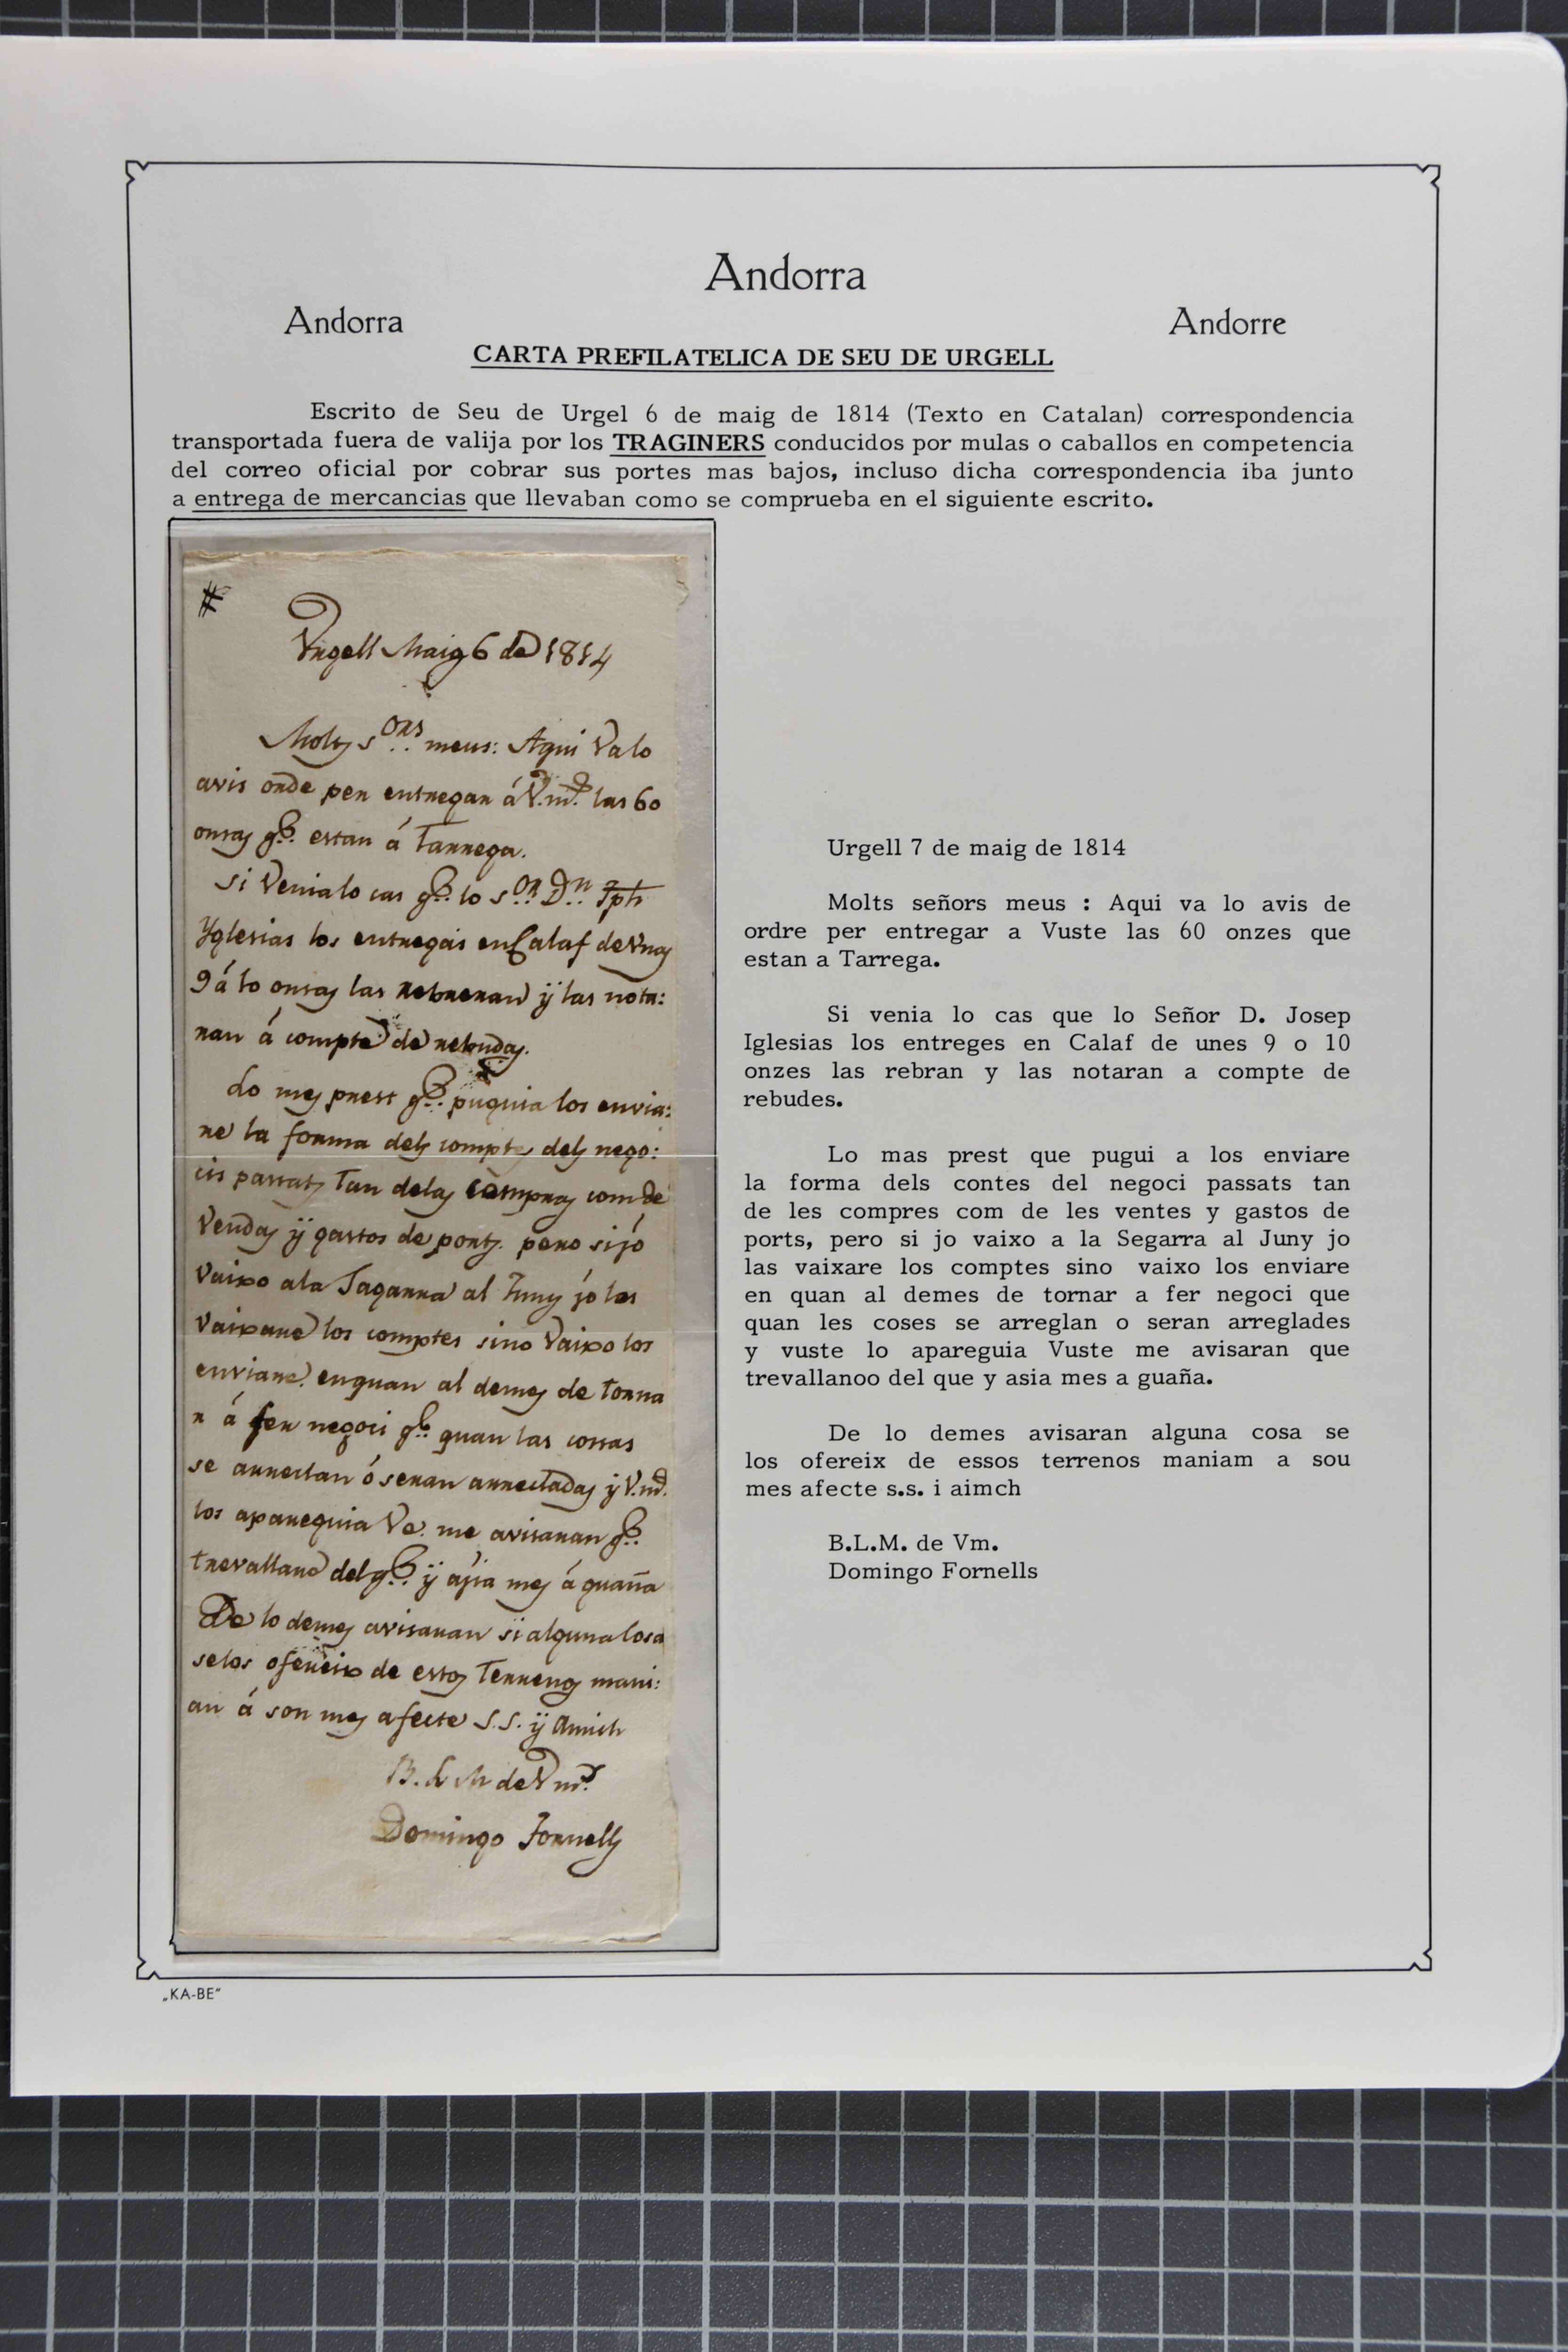 Andorra
Andorra
Andorre
CARTA PREFILATELICA DE SEU DE URGELL
Escrito de Seu de Urgel 6 de maig de 1814 (Texto en Catalan) correspondencia
transportada fuera de valija por los TRAGINERS conducidos por mulas o caballos en competencia
del correo oficial por cobrar sus portes mas bajos, incluso dicha correspondencia iba junto
a entrega de mercancias que llevaban como se comprueba en el siguiente escrito.
#
Urgell Maig 6 de 1814
Molts s.ors meus: Aqui va lo
avis orde per entregar á V.md. las 60
onsas q.e estan á Tarrega.
Si venia lo cas q.e lo s.or D.n Jph
Yglesias los entregás en Calaf de unas
9 á 10 onsas las rebreran ÿ las nota:
ran á compte de rebudas.
Lo mes prest q.e puguia los envia:
re la forma dels comptes dels nego:
cis passats tan delas compras com de
vendas ÿ gastos de ports. pero si jó
vaixo ala Sagarra al Juny jó los
vaixare los comptes sino vaixo los
enviare. enquan al demes de torna
r á fer negoci q.e quan las cossas
se arreclan ó seran arrecladas ÿ V.md.
los apareguia Ve. me avisaran q.e
trevallare del q.e ÿ ajia mes á guaña
De lo demes avisaran si alguna cosa
selos ofereix de estos terrenos mani:
an á son mes afecte S.S. ÿ Amich
B. L. M de Vmd.
Domingo Fornells
Urgell 7 de maig de 1814
Molts señors meus : Aqui va lo avis de
ordre per entregar a Vuste las 60 onzes que
estan a Tarrega.
Si venia lo cas que lo Señor D. Josep
Iglesias los entreges en Calaf de unes 9 o 10
onzes las rebran y las notaran a compte de
rebudes.
Lo mas prest que pugui a los enviare
la forma dels contes del negoci passats tan
de les compres com de les ventes y gastos de
ports, pero si jo vaixo a la Segarra al Juny jo
las vaixare los comptes sino vaixo los enviare
en quan al demes de tornar a fer negoci que
quan les coses se arreglan o seran arreglades
y vuste lo apareguia Vuste me avisaran que
trevallanoo del que y asia mes a guaña.
De lo demes avisaran alguna cosa se
los ofereix de essos terrenos maniam a sou
mes afecte s.s. i aimch
B.L.M. de Vm.
Domingo Fornells
„KA-BE“